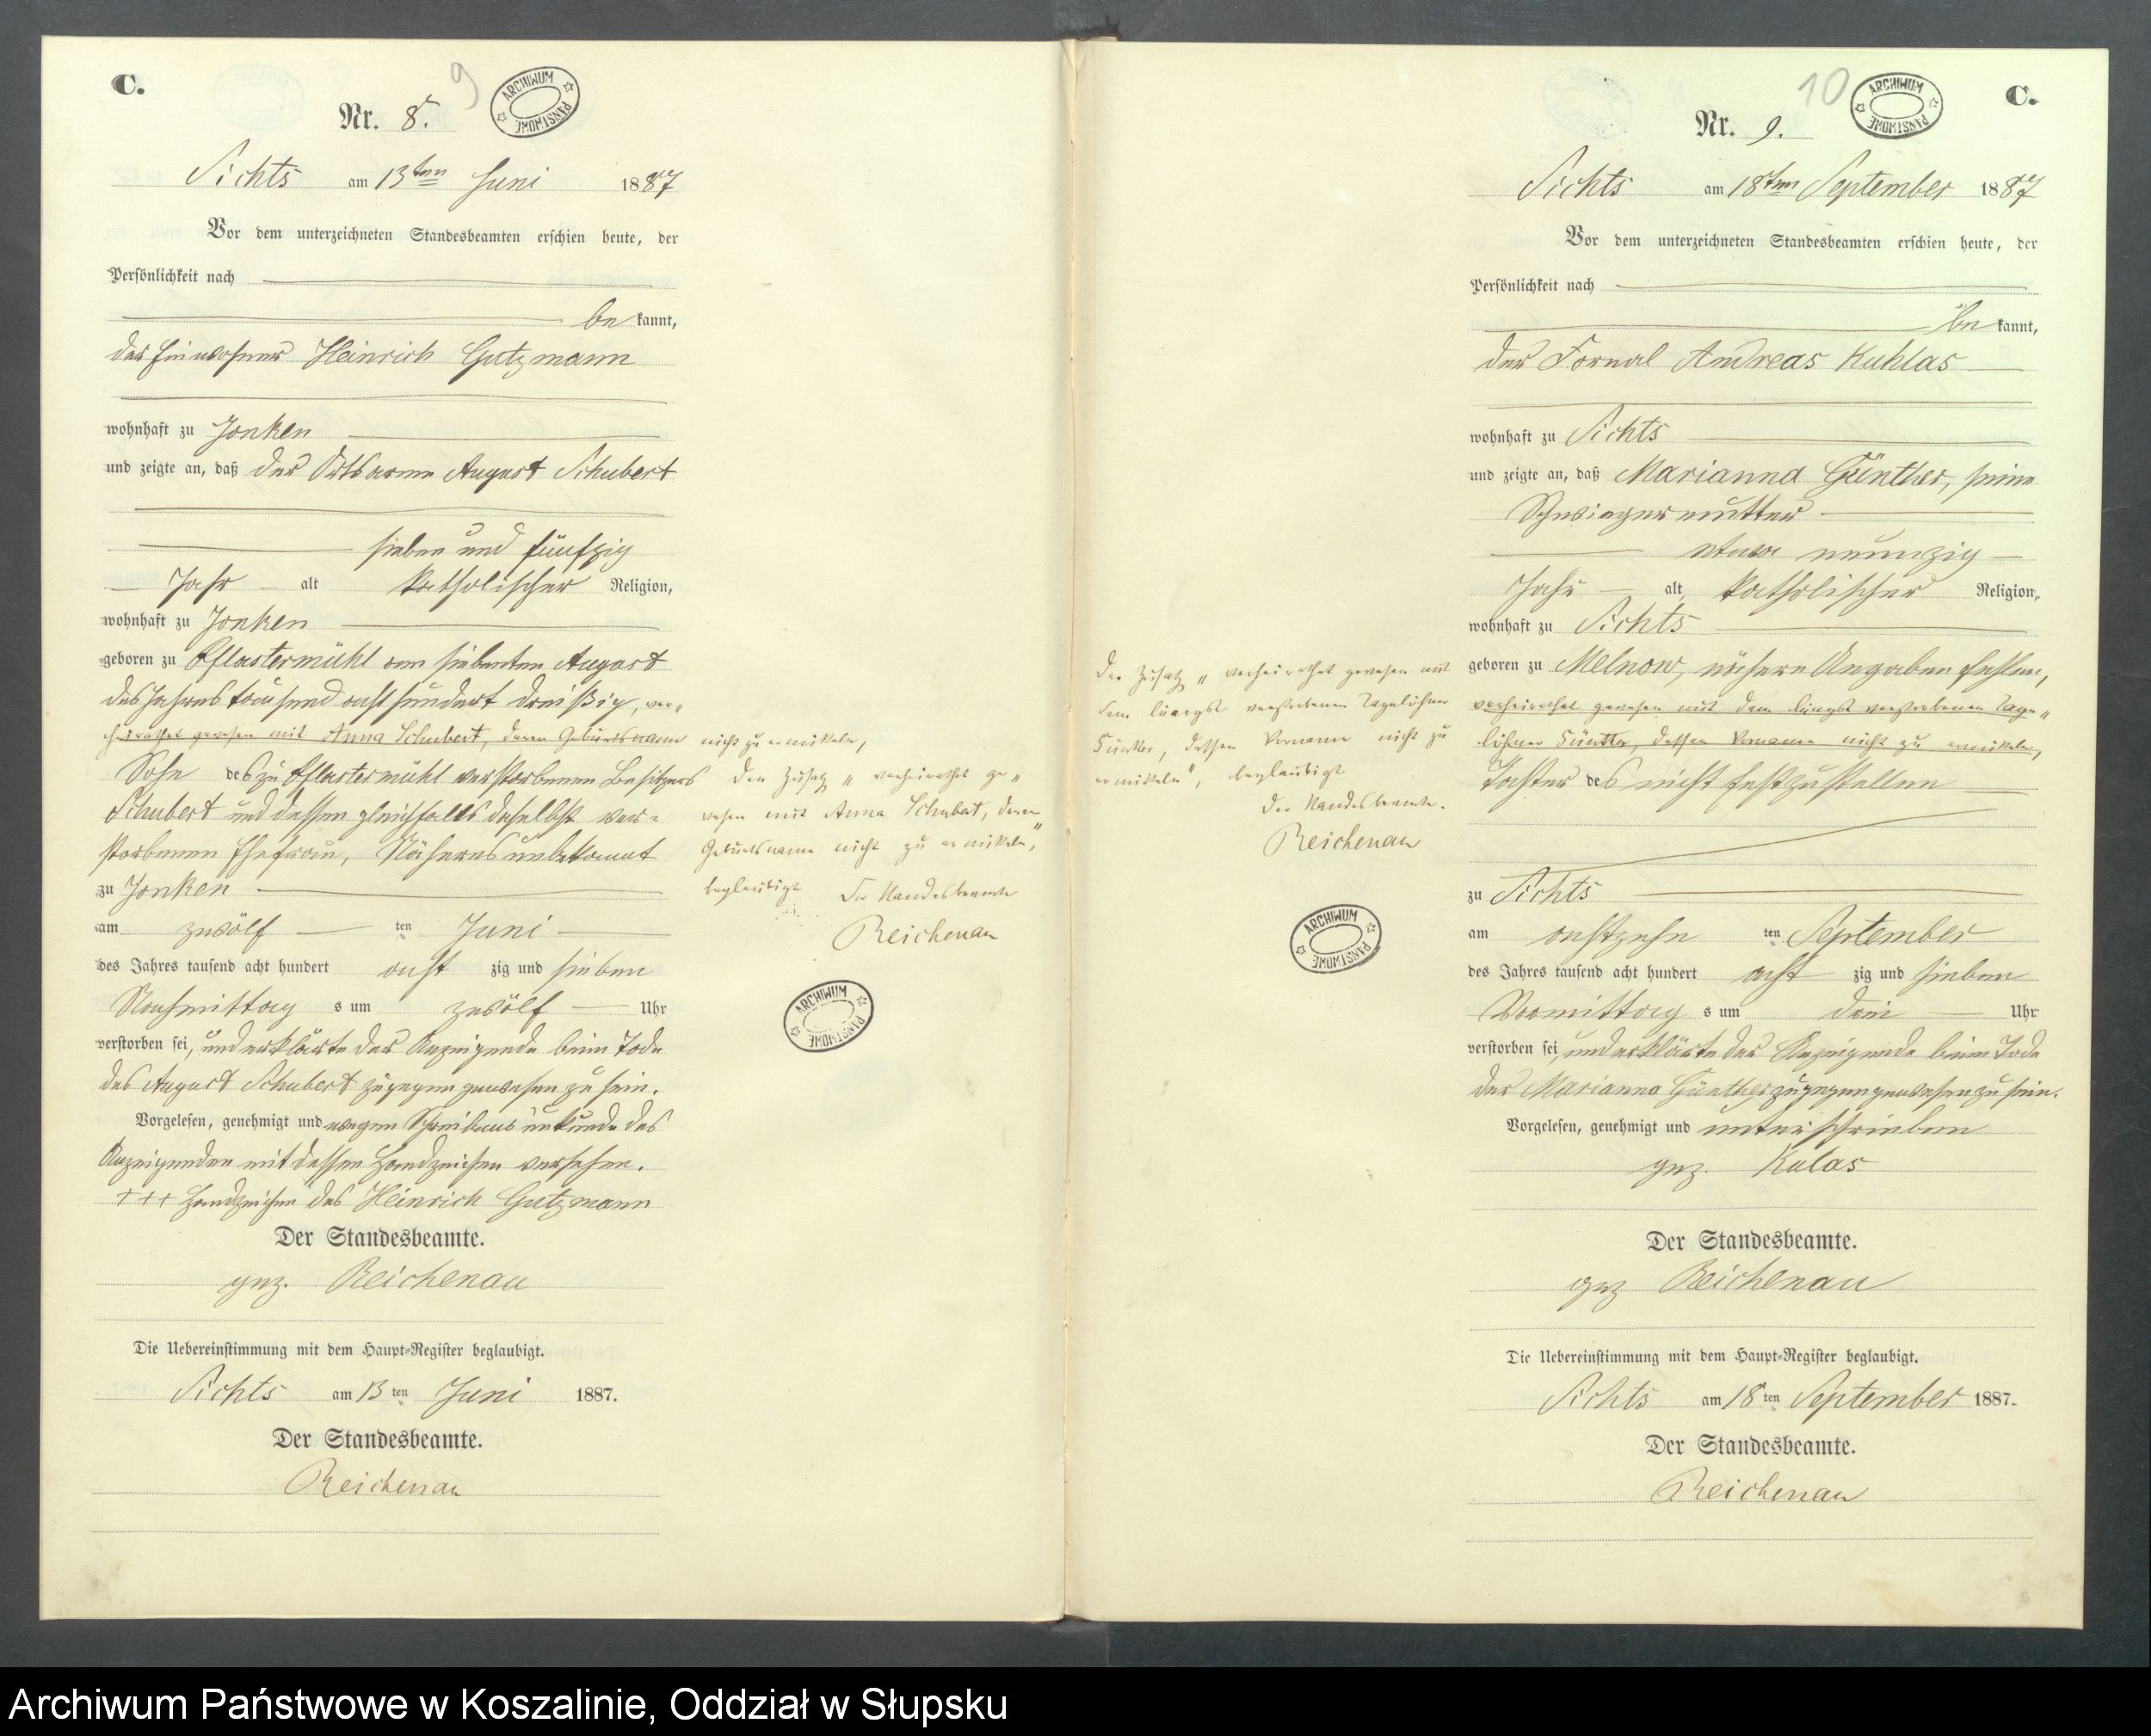 C.
9
ARCHIWUM PAŃSTWOWE
Nr. 8.
Sichts am 13ten Juni 1887
Vor dem unterzeichneten Standesbeamten erschien heute, der
Persönlichkeit nach
bekannt,
der Einwohner Heinrich Gutzmann
wohnhaft zu Jonken
und zeigte an, daß der Ortsarme August Schubert
sieben und fünfzig
Jahr alt katholischer Religion,
wohnhaft zu Jonken
geboren zu Pflastermühl am siebenten August
des Jahres tausend acht hundert dreißig, ver-
heirathet gewesen mit Anna Schubert, deren Geburtsname nicht zu ermitteln,
Sohn des zu Pflastermühl verstorbenen Besitzers
Schubert und dessen gleichfalls daselbst ver-
storbenen Ehefrau, Näheres unbekannt
zu Jonken
am zwölf ten Juni
des Jahres tausend acht hundert acht zig und sieben
Nachmittag s um zwölf Uhr
verstorben sei, und erklärte der Anzeigende beim Tode
des August Schubert zugegen gewesen zu sein.
Vorgelesen, genehmigt und wegen Schreibensunkunde des
Anzeigenden mit dessen Handzeichen versehen.
+++ Handzeichen des Heinrich Gutzmann
Der Standesbeamte.
gez. Reichenau
Die Uebereinstimmung mit dem Haupt-Register beglaubigt.
Sichts am 13 ten Juni 1887.
Der Standesbeamte.
Reichenau
Den Zusatz „verheirathet ge-
wesen mit Anna Schubert, deren
Geburtsname nicht zu ermitteln,"
beglaubigt Der Standesbeamte
Reichenau
ARCHIWUM PAŃSTWOWE
C.
10
ARCHIWUM PAŃSTWOWE
Nr. 9.
Sichts am 18ten September 1887
Vor dem unterzeichneten Standesbeamten erschien heute, der
Persönlichkeit nach
bekannt,
der Fornal Andreas Kuhlas
wohnhaft zu Sichts
und zeigte an, daß Marianna Günther, seine
Schwiegermutter
etwa neunzig
Jahr alt, katholischer Religion,
wohnhaft zu Sichts
geboren zu Melnow, nähere Angaben fehlen,
verheirathet gewesen mit dem längst verstorbenen Tage-
löhner Günther, dessen Vorname nicht zu ermitteln,
Tochter des nicht festzustellen
zu Sichts
am achtzehn ten September
des Jahres tausend acht hundert acht zig und sieben
Vormittag s um drei Uhr
verstorben sei, und erklärte der Anzeigende beim Tode
der Marianna Günther zugegen gewesen zu sein.
Vorgelesen, genehmigt und unterschrieben
gez. Kulas
Der Standesbeamte.
gez Reichenau
Die Uebereinstimmung mit dem Haupt-Register beglaubigt.
Sichts am 18 ten September 1887.
Der Standesbeamte.
Reichenau
Den Zusatz „verheirathet gewesen mit
dem längst verstorbenen Tagelöhner
Günther, dessen Vorname nicht zu
ermitteln", beglaubigt
Der Standesbeamte.
Reichenau
ARCHIWUM PAŃSTWOWE
Archiwum Państwowe w Koszalinie, Oddział w Słupsku